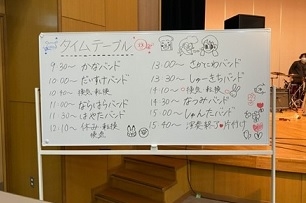 タイムテーブル
9:30〜 かなバンド
10:00〜 だいすけバンド
10:40〜 換気・転換
11:00〜 ならはらバンド
11:30〜 はやたバンド
12:10〜 休み・転換
換気
13:00〜 さかぐちバンド
13:30〜 しゅーさちバンド
14:10〜 換気・転換
14:30〜 なつみバンド
15:00〜 しゅんたバンド
15:40〜 演奏終了 片付け